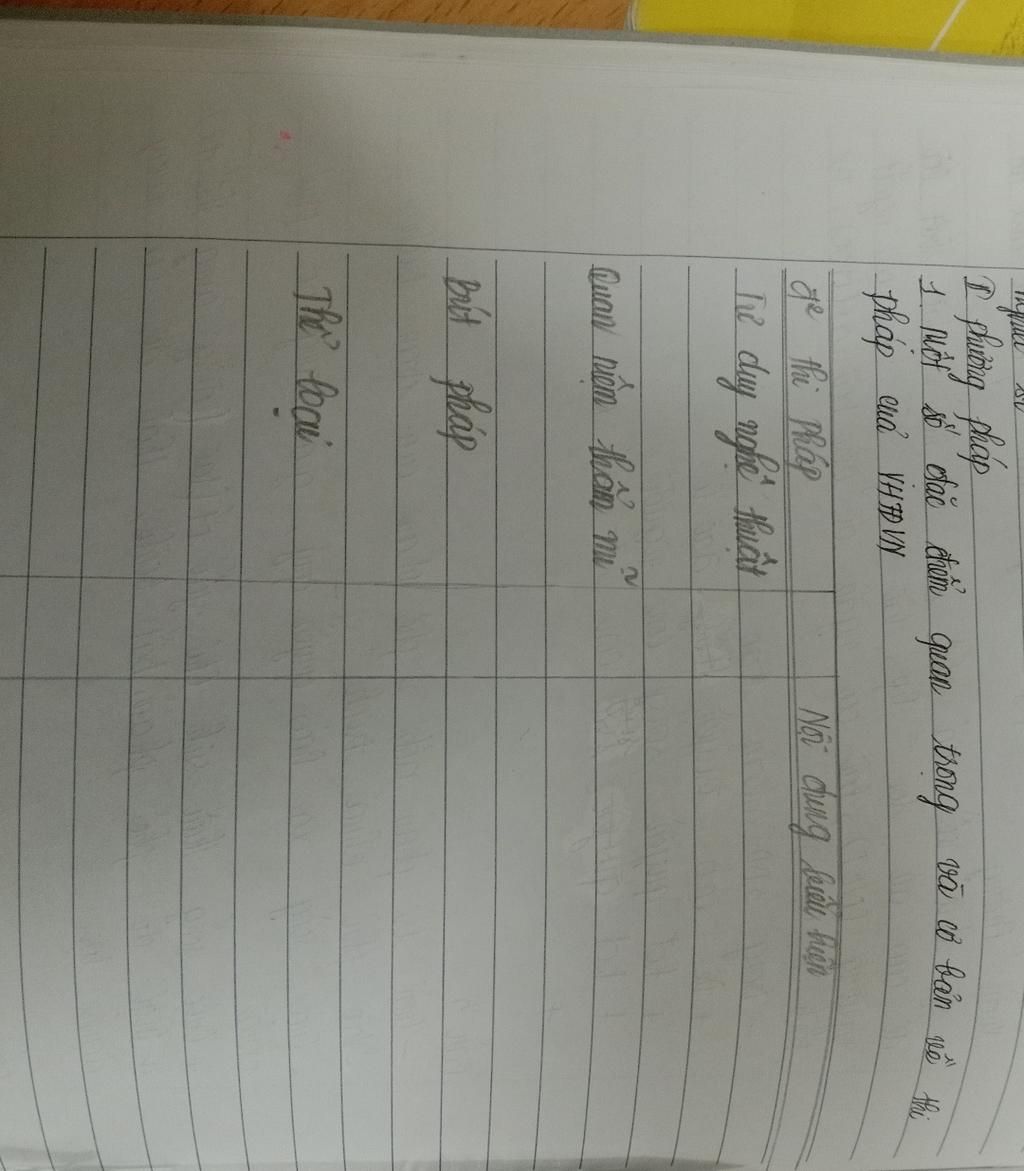 II phương pháp
1 một số đặc điểm quan trọng và cơ bản về thi
pháp của VHTĐVN
đ² thi pháp Nội dung biểu hiện
Tư duy nghệ thuật
Quan niệm thẩm mĩ
bút pháp
Thể loại